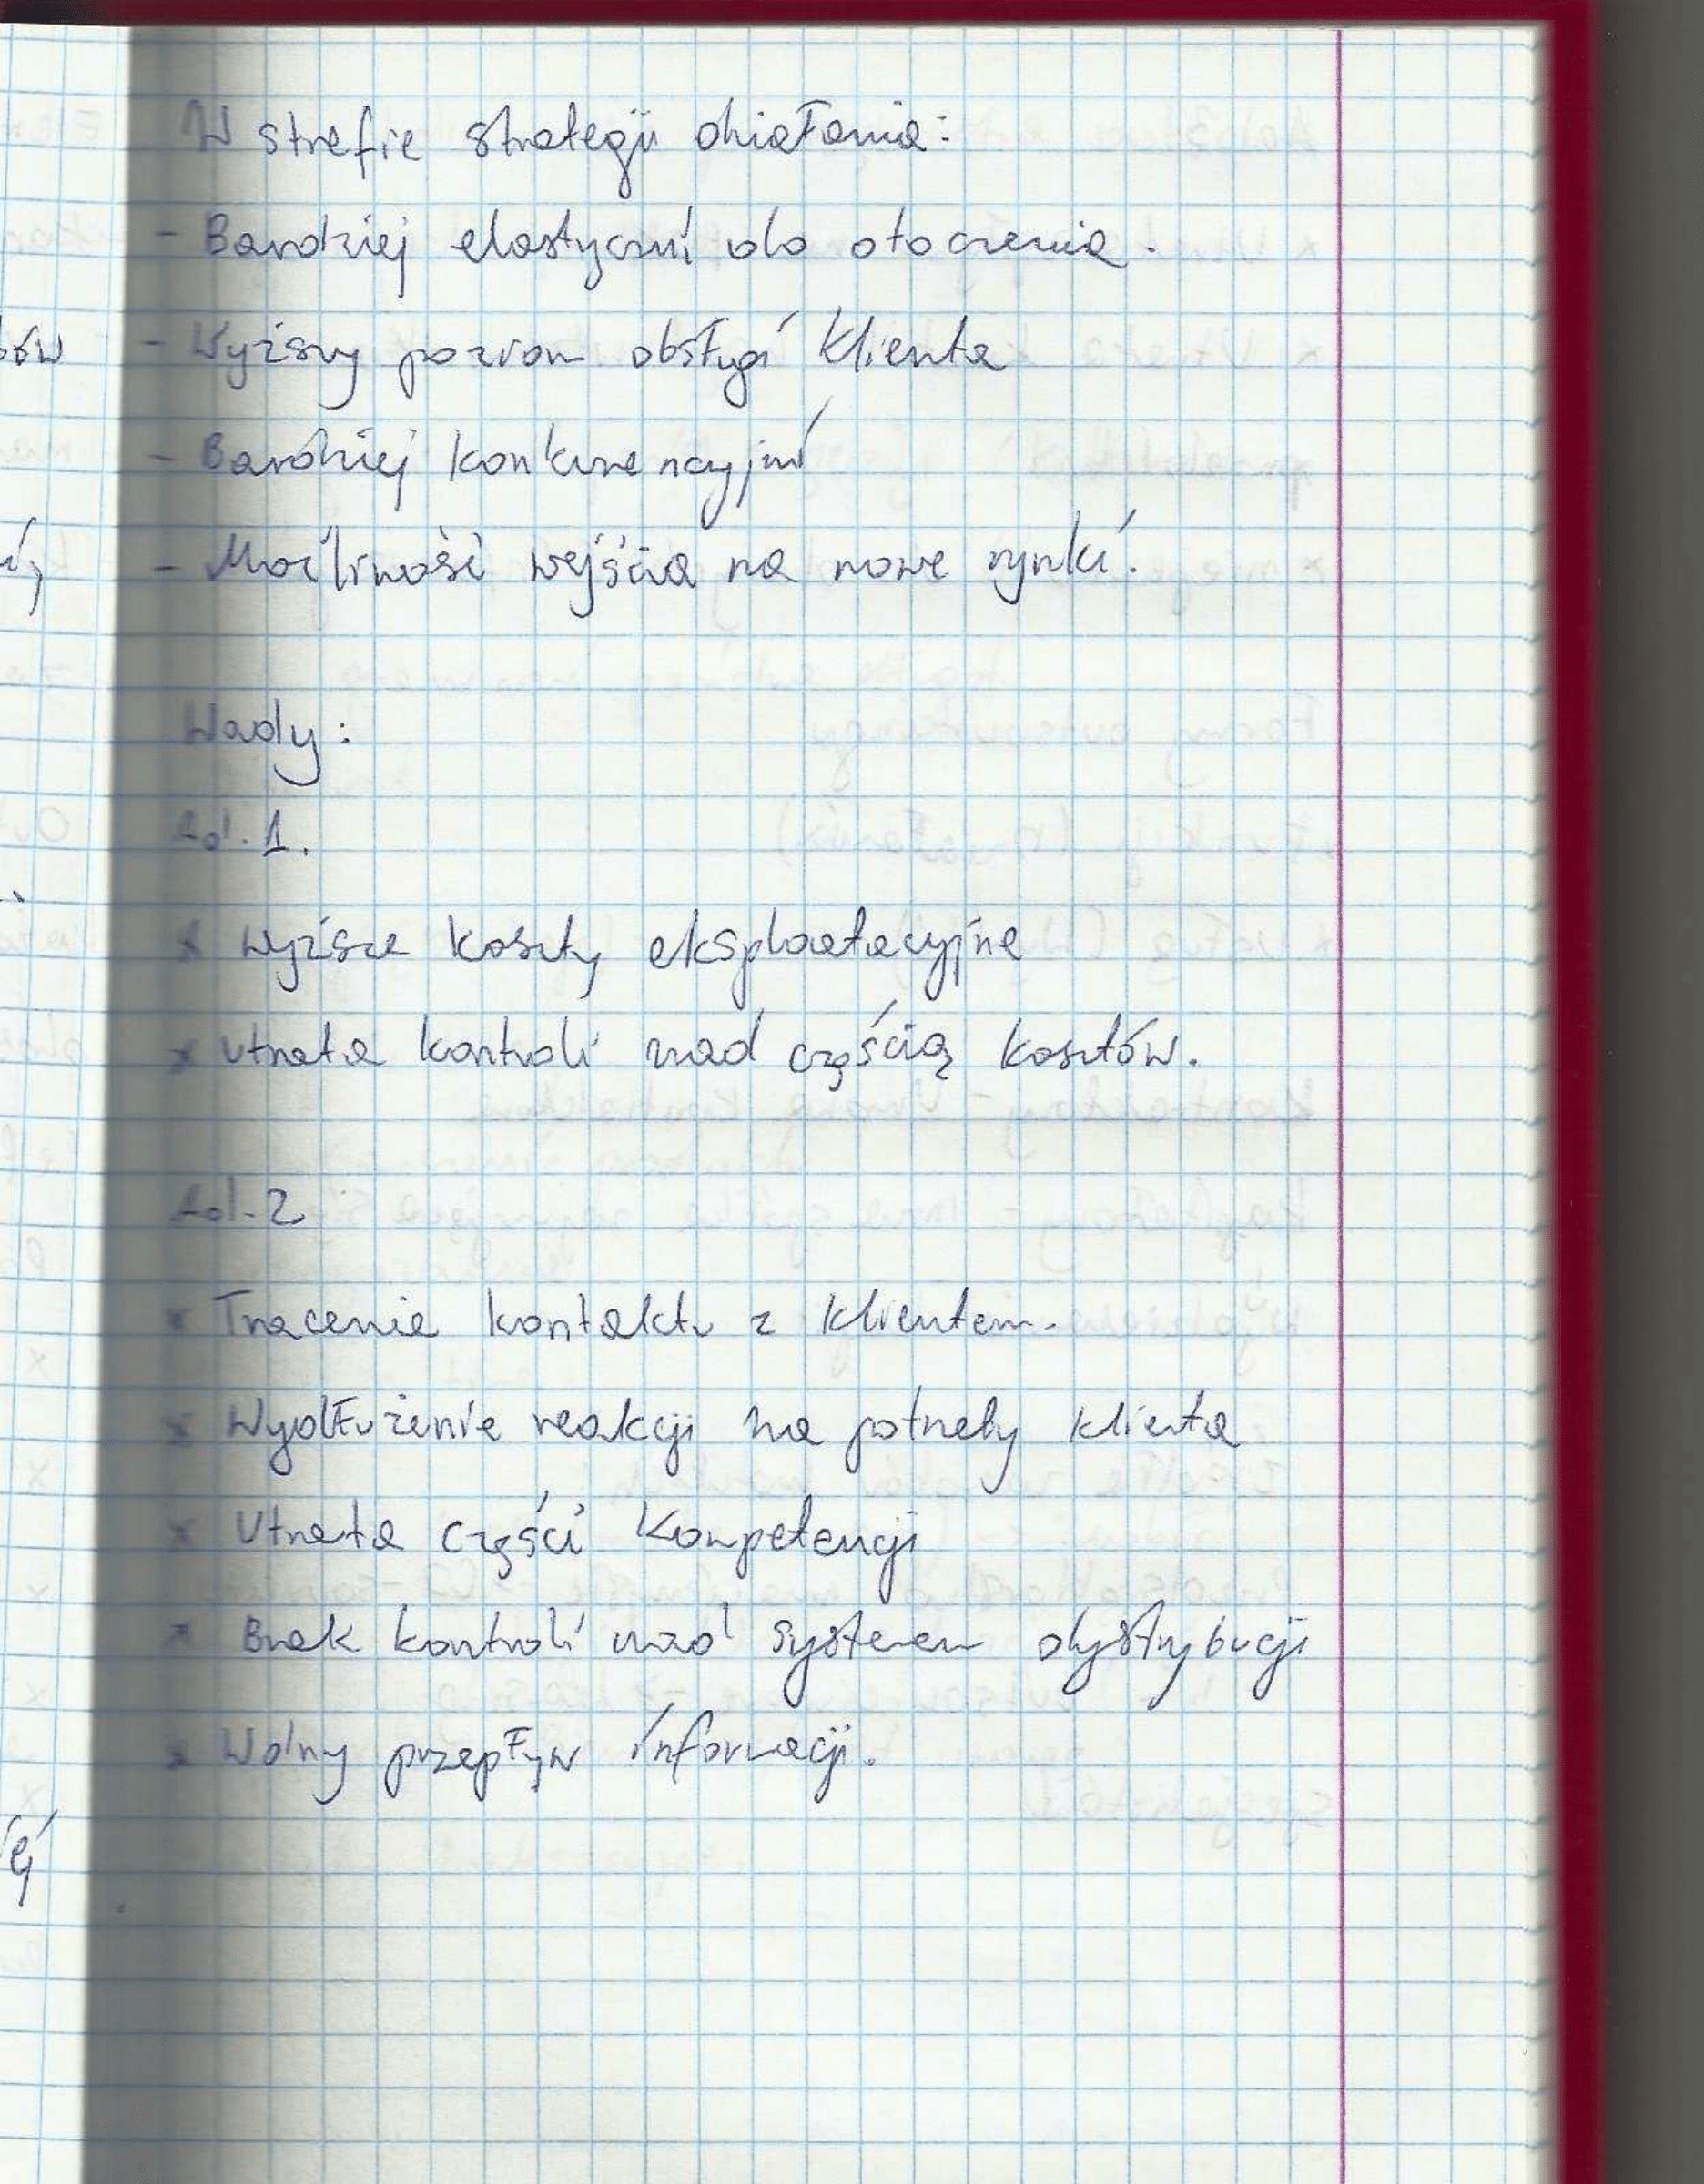 W strefie strategii działania:
- Bardziej elastyczni do otoczenia.
- Wyższy poziom obsługi klienta
- Bardziej konkurencyjni
- Możliwość wejścia na nowe rynki.
Wady:
Ad. 1.
x wyższe koszty eksploatacyjne
x utrata kontroli nad częścią kosztów.
Ad. 2
x Tracenie kontaktu z klientem.
x Wydłużenie reakcji na potrzeby klienta
x Utrata części kompetencji
x Brak kontroli nad systemem dystrybucji
x Wolny przepływ informacji.